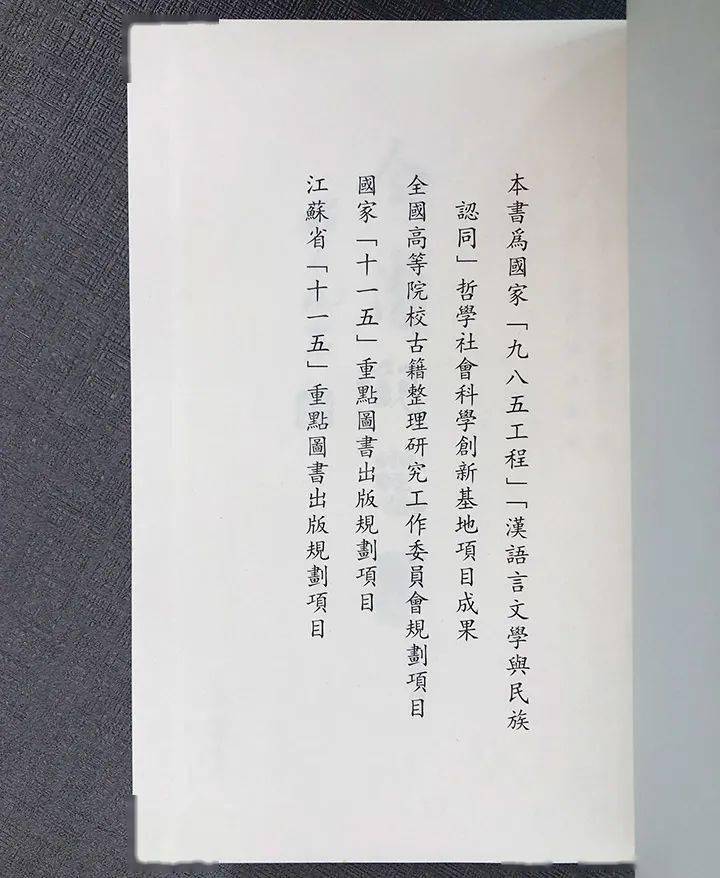 本書爲國家「九八五工程」「漢語言文學與民族
認同」哲學社會科學創新基地項目成果
全國高等院校古籍整理研究工作委員會規劃項目
國家「十一五」重點圖書出版規劃項目
江蘇省「十一五」重點圖書出版規劃項目